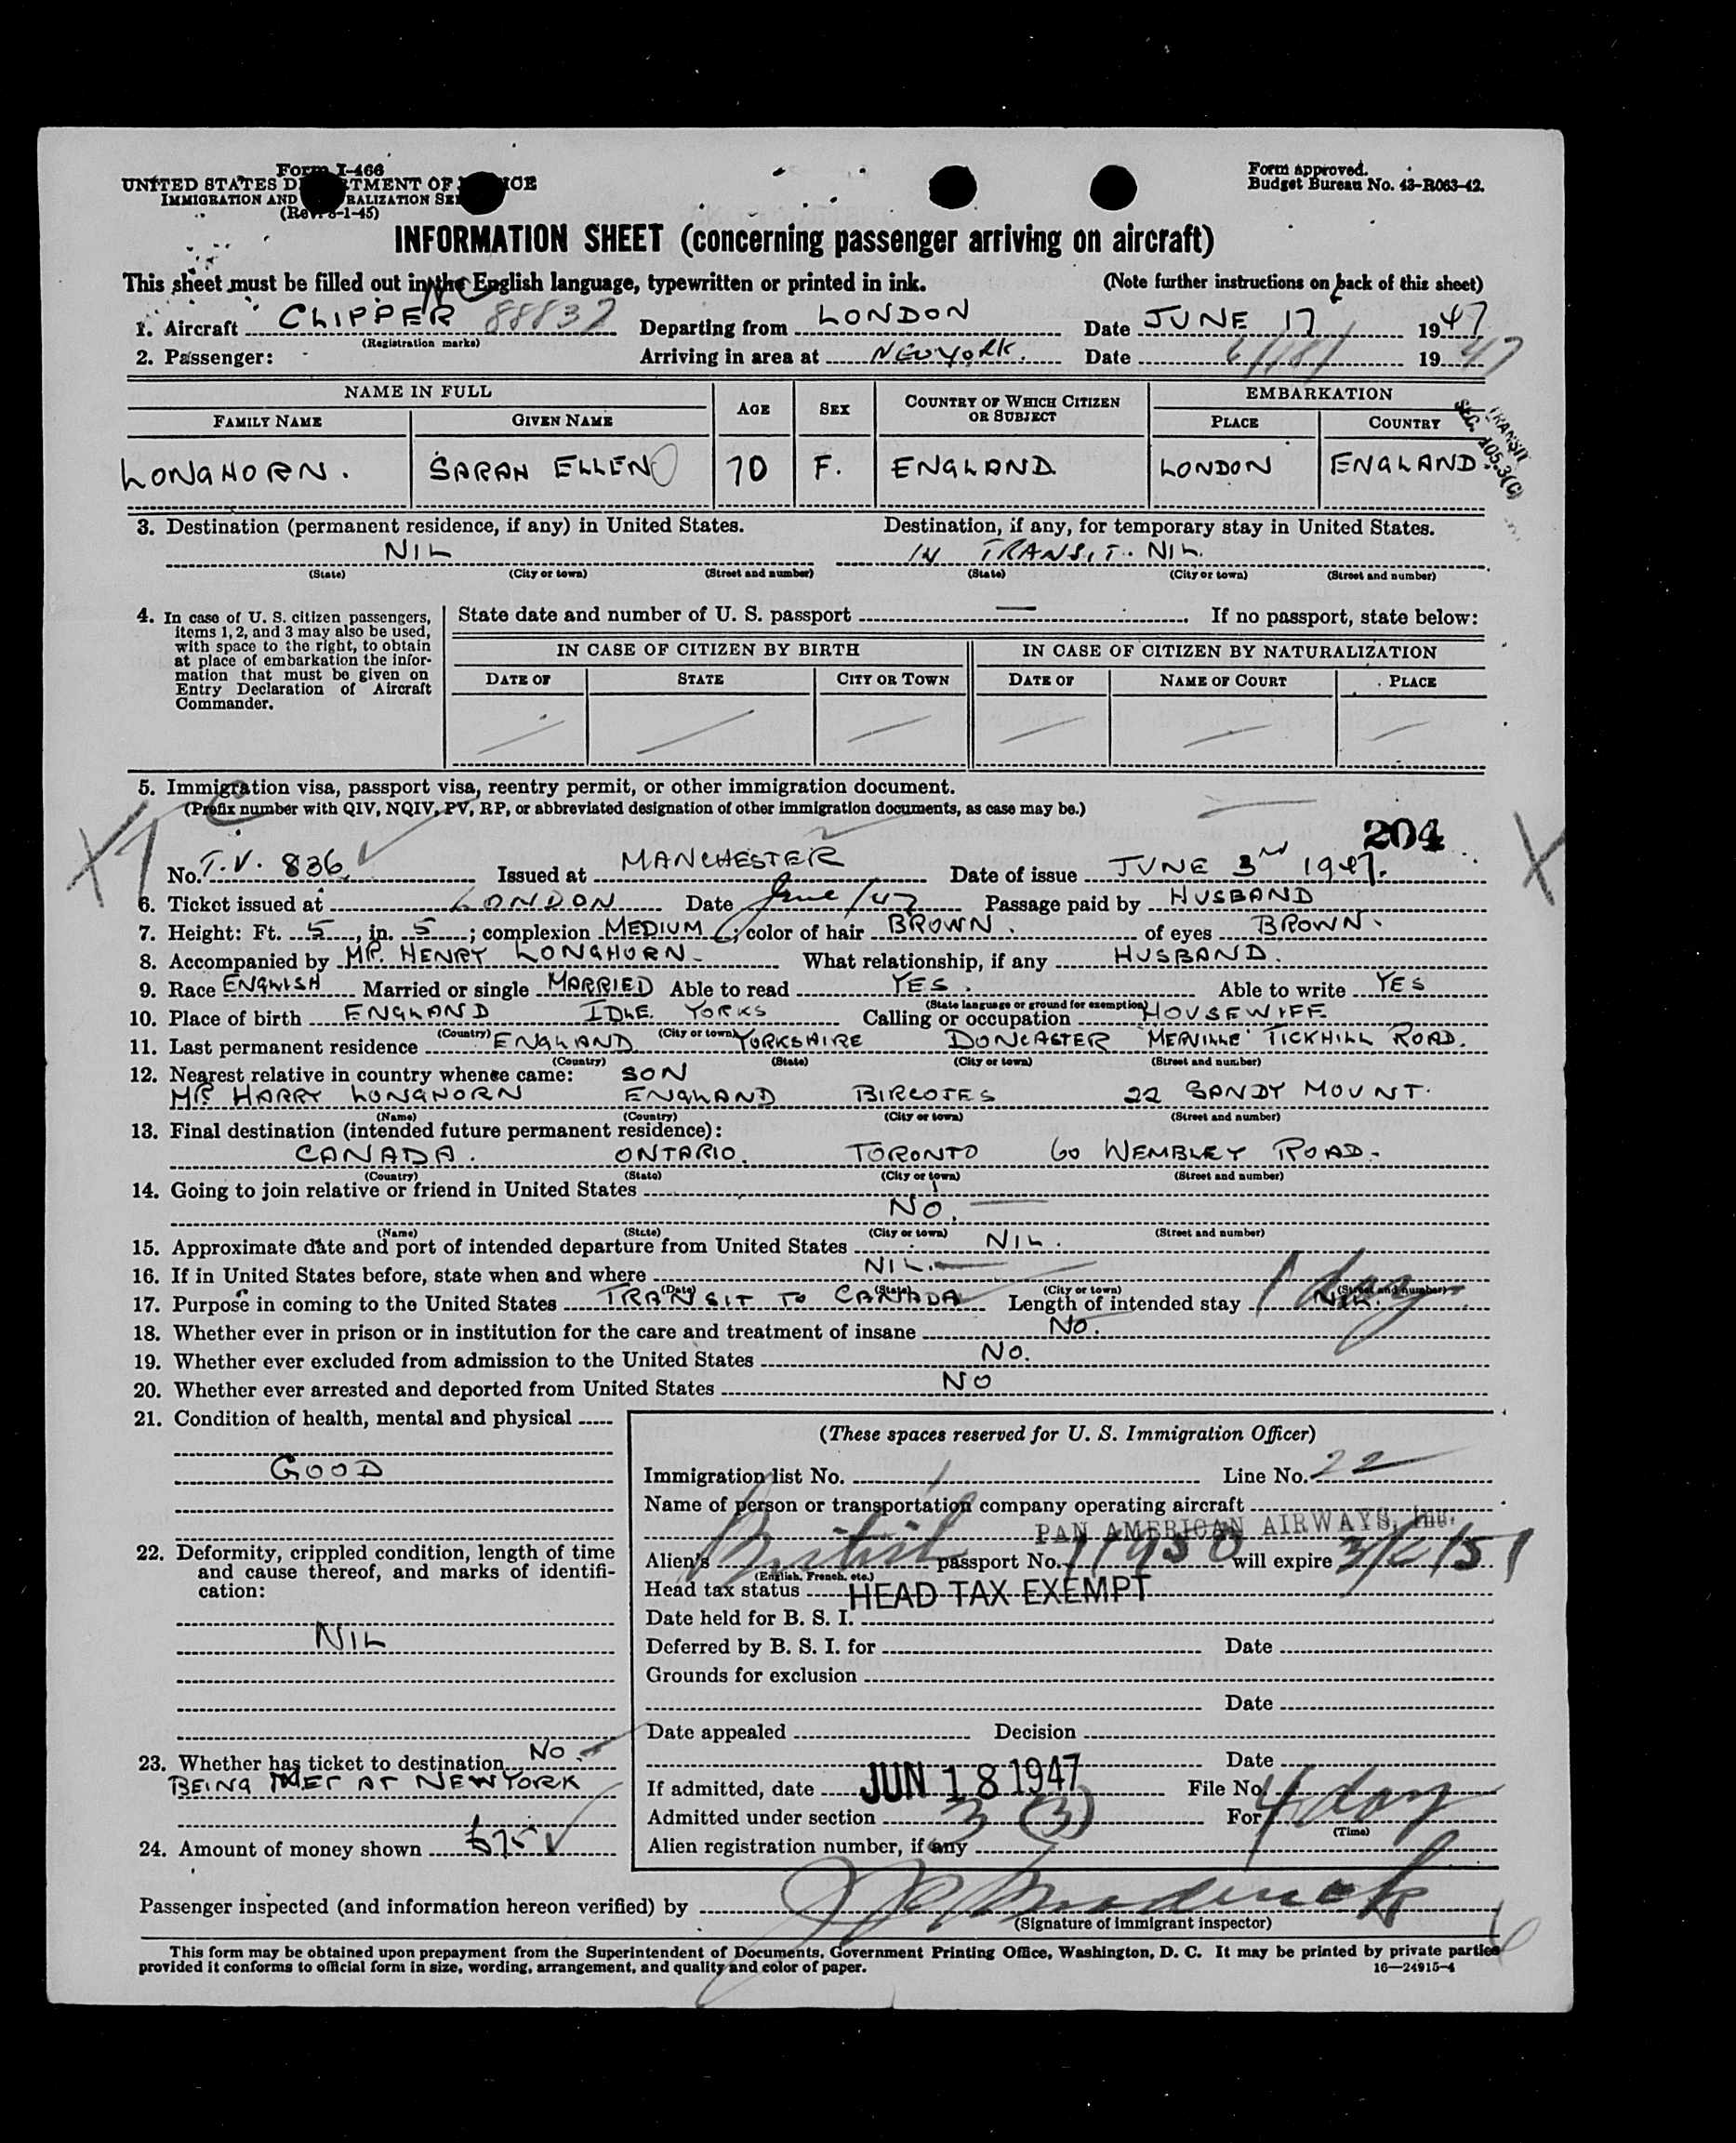 Form I-466
UNITED STATES DEPARTMENT OF JUSTICE
IMMIGRATION AND NATURALIZATION SERVICE
(Rev. 8-1-45)
Form approved.
Budget Bureau No. 43-R063-42.
INFORMATION SHEET (concerning passenger arriving on aircraft)
This sheet must be filled out in the English language, typewritten or printed in ink. (Note further instructions on back of this sheet)
1. Aircraft CLIPPER NC 88832 Departing from LONDON Date JUNE 17 1947
(Registration marks)
2. Passenger: Arriving in area at NEW YORK. Date 6/18/ 1947
NAME IN FULL AGE SEX COUNTRY OF WHICH CITIZEN OR SUBJECT EMBARKATION
FAMILY NAME GIVEN NAME PLACE COUNTRY
TRANSIT
SEC. 105.3(C)
LONGHORN. SARAH ELLEN 70 F. ENGLAND LONDON ENGLAND.
3. Destination (permanent residence, if any) in United States. Destination, if any, for temporary stay in United States.
NIL IN TRANSIT. NIL.
(State) (City or town) (Street and number) (State) (City or town) (Street and number)
4. In case of U. S. citizen passengers, items 1, 2, and 3 may also be used, with space to the right, to obtain at place of embarkation the information that must be given on Entry Declaration of Aircraft Commander.
State date and number of U. S. passport — If no passport, state below:
IN CASE OF CITIZEN BY BIRTH IN CASE OF CITIZEN BY NATURALIZATION
DATE OF STATE CITY OR TOWN DATE OF NAME OF COURT PLACE
5. Immigration visa, passport visa, reentry permit, or other immigration document.
(Prefix number with QIV, NQIV, PV, RP, or abbreviated designation of other immigration documents, as case may be.)
204
No. T.V. 836 Issued at MANCHESTER Date of issue JUNE 3RD 1947.
6. Ticket issued at LONDON Date June/47 Passage paid by HUSBAND
7. Height: Ft. 5, in. 5; complexion MEDIUM; color of hair BROWN. of eyes BROWN.
8. Accompanied by MR. HENRY LONGHORN. What relationship, if any HUSBAND.
9. Race ENGLISH Married or single MARRIED Able to read YES. Able to write YES
(State language or ground for exemption)
10. Place of birth ENGLAND IDLE YORKS Calling or occupation HOUSEWIFE
(Country) (City or town)
11. Last permanent residence ENGLAND YORKSHIRE DONCASTER "MERVILLE" TICKHILL ROAD.
(Country) (State) (City or town) (Street and number)
12. Nearest relative in country whence came: SON
MR. HARRY LONGHORN ENGLAND BIRCOTES 22 SANDY MOUNT.
(Name) (Country) (City or town) (Street and number)
13. Final destination (intended future permanent residence):
CANADA. ONTARIO. TORONTO 60 WEMBLEY ROAD.
(Country) (State) (City or town) (Street and number)
14. Going to join relative or friend in United States
NO.
(Name) (State) (City or town) (Street and number)
15. Approximate date and port of intended departure from United States NIL.
16. If in United States before, state when and where NIL.
(Date) (State) (City or town) (Street and number)
17. Purpose in coming to the United States TRANSIT TO CANADA Length of intended stay NIL. 1 day
18. Whether ever in prison or in institution for the care and treatment of insane NO.
19. Whether ever excluded from admission to the United States NO.
20. Whether ever arrested and deported from United States NO
21. Condition of health, mental and physical
GOOD
22. Deformity, crippled condition, length of time and cause thereof, and marks of identification:
NIL
23. Whether has ticket to destination NO.
BEING MET AT NEW YORK
24. Amount of money shown £75
(These spaces reserved for U. S. Immigration Officer)
Immigration list No. 1 Line No. 22
Name of person or transportation company operating aircraft
PAN AMERICAN AIRWAYS, Inc.
Alien's British passport No. 11930 will expire 3/6/51
(English, French, etc.)
Head tax status HEAD TAX EXEMPT
Date held for B. S. I.
Deferred by B. S. I. for Date
Grounds for exclusion
Date
Date appealed Decision
Date
If admitted, date JUN 18 1947 File No.
Admitted under section 3 (3) For 1 day
(Time)
Alien registration number, if any
Passenger inspected (and information hereon verified) by
(Signature of immigrant inspector)
This form may be obtained upon prepayment from the Superintendent of Documents, Government Printing Office, Washington, D. C. It may be printed by private parties
provided it conforms to official form in size, wording, arrangement, and quality and color of paper. 16—24915-4